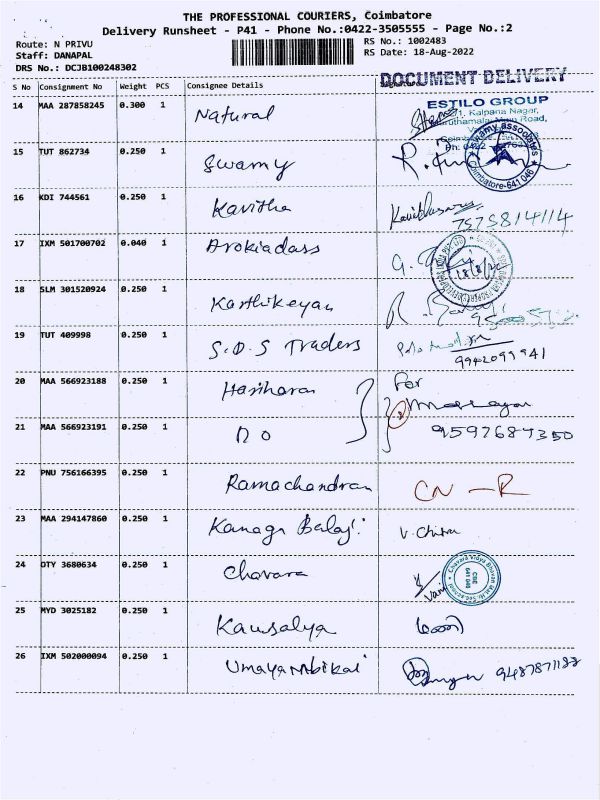 THE PROFESSIONAL COURIERS, Coimbatore
Delivery Runsheet - P41 - Phone No.:0422-3505555 - Page No.:2
Route: N PRIVU RS No.: 1002483
Staff: DANAPAL RS Date: 18-Aug-2022
DRS No.: DCJB100248302
DOCUMENT DELIVERY
S No Consignment No Weight PCS Consignee Details
ESTILO GROUP
Kalpana Nagar,
Road,
14 MAA 287858245 0.300 1 Natural
15 TUT 862734 0.250 1 Swamy
Swamy associates
Coimbatore-641 046
16 KDI 744561 0.250 1 Kavitha
7373814114
17 IXM 501700702 0.040 1 Arokiadass
18 SLM 301520924 0.250 1 Karthikeyan
19 TUT 409998 0.250 1 S.D.S Traders
9942099941
20 MAA 566923188 0.250 1 Hariharan For
21 MAA 566923191 0.250 1 DO 9597684350
22 PNU 756166395 0.250 1 Ramachandran CN - R
23 MAA 294147860 0.250 1 Kanaga Balaji V. Chitra
24 OTY 3680634 0.250 1 Chavara Vani
Chavara Vidya Bhavan
CBE
641 048
25 MYD 3025182 0.250 1 Kausalya
26 IXM 502000094 0.250 1 Umayambikai 9487871182